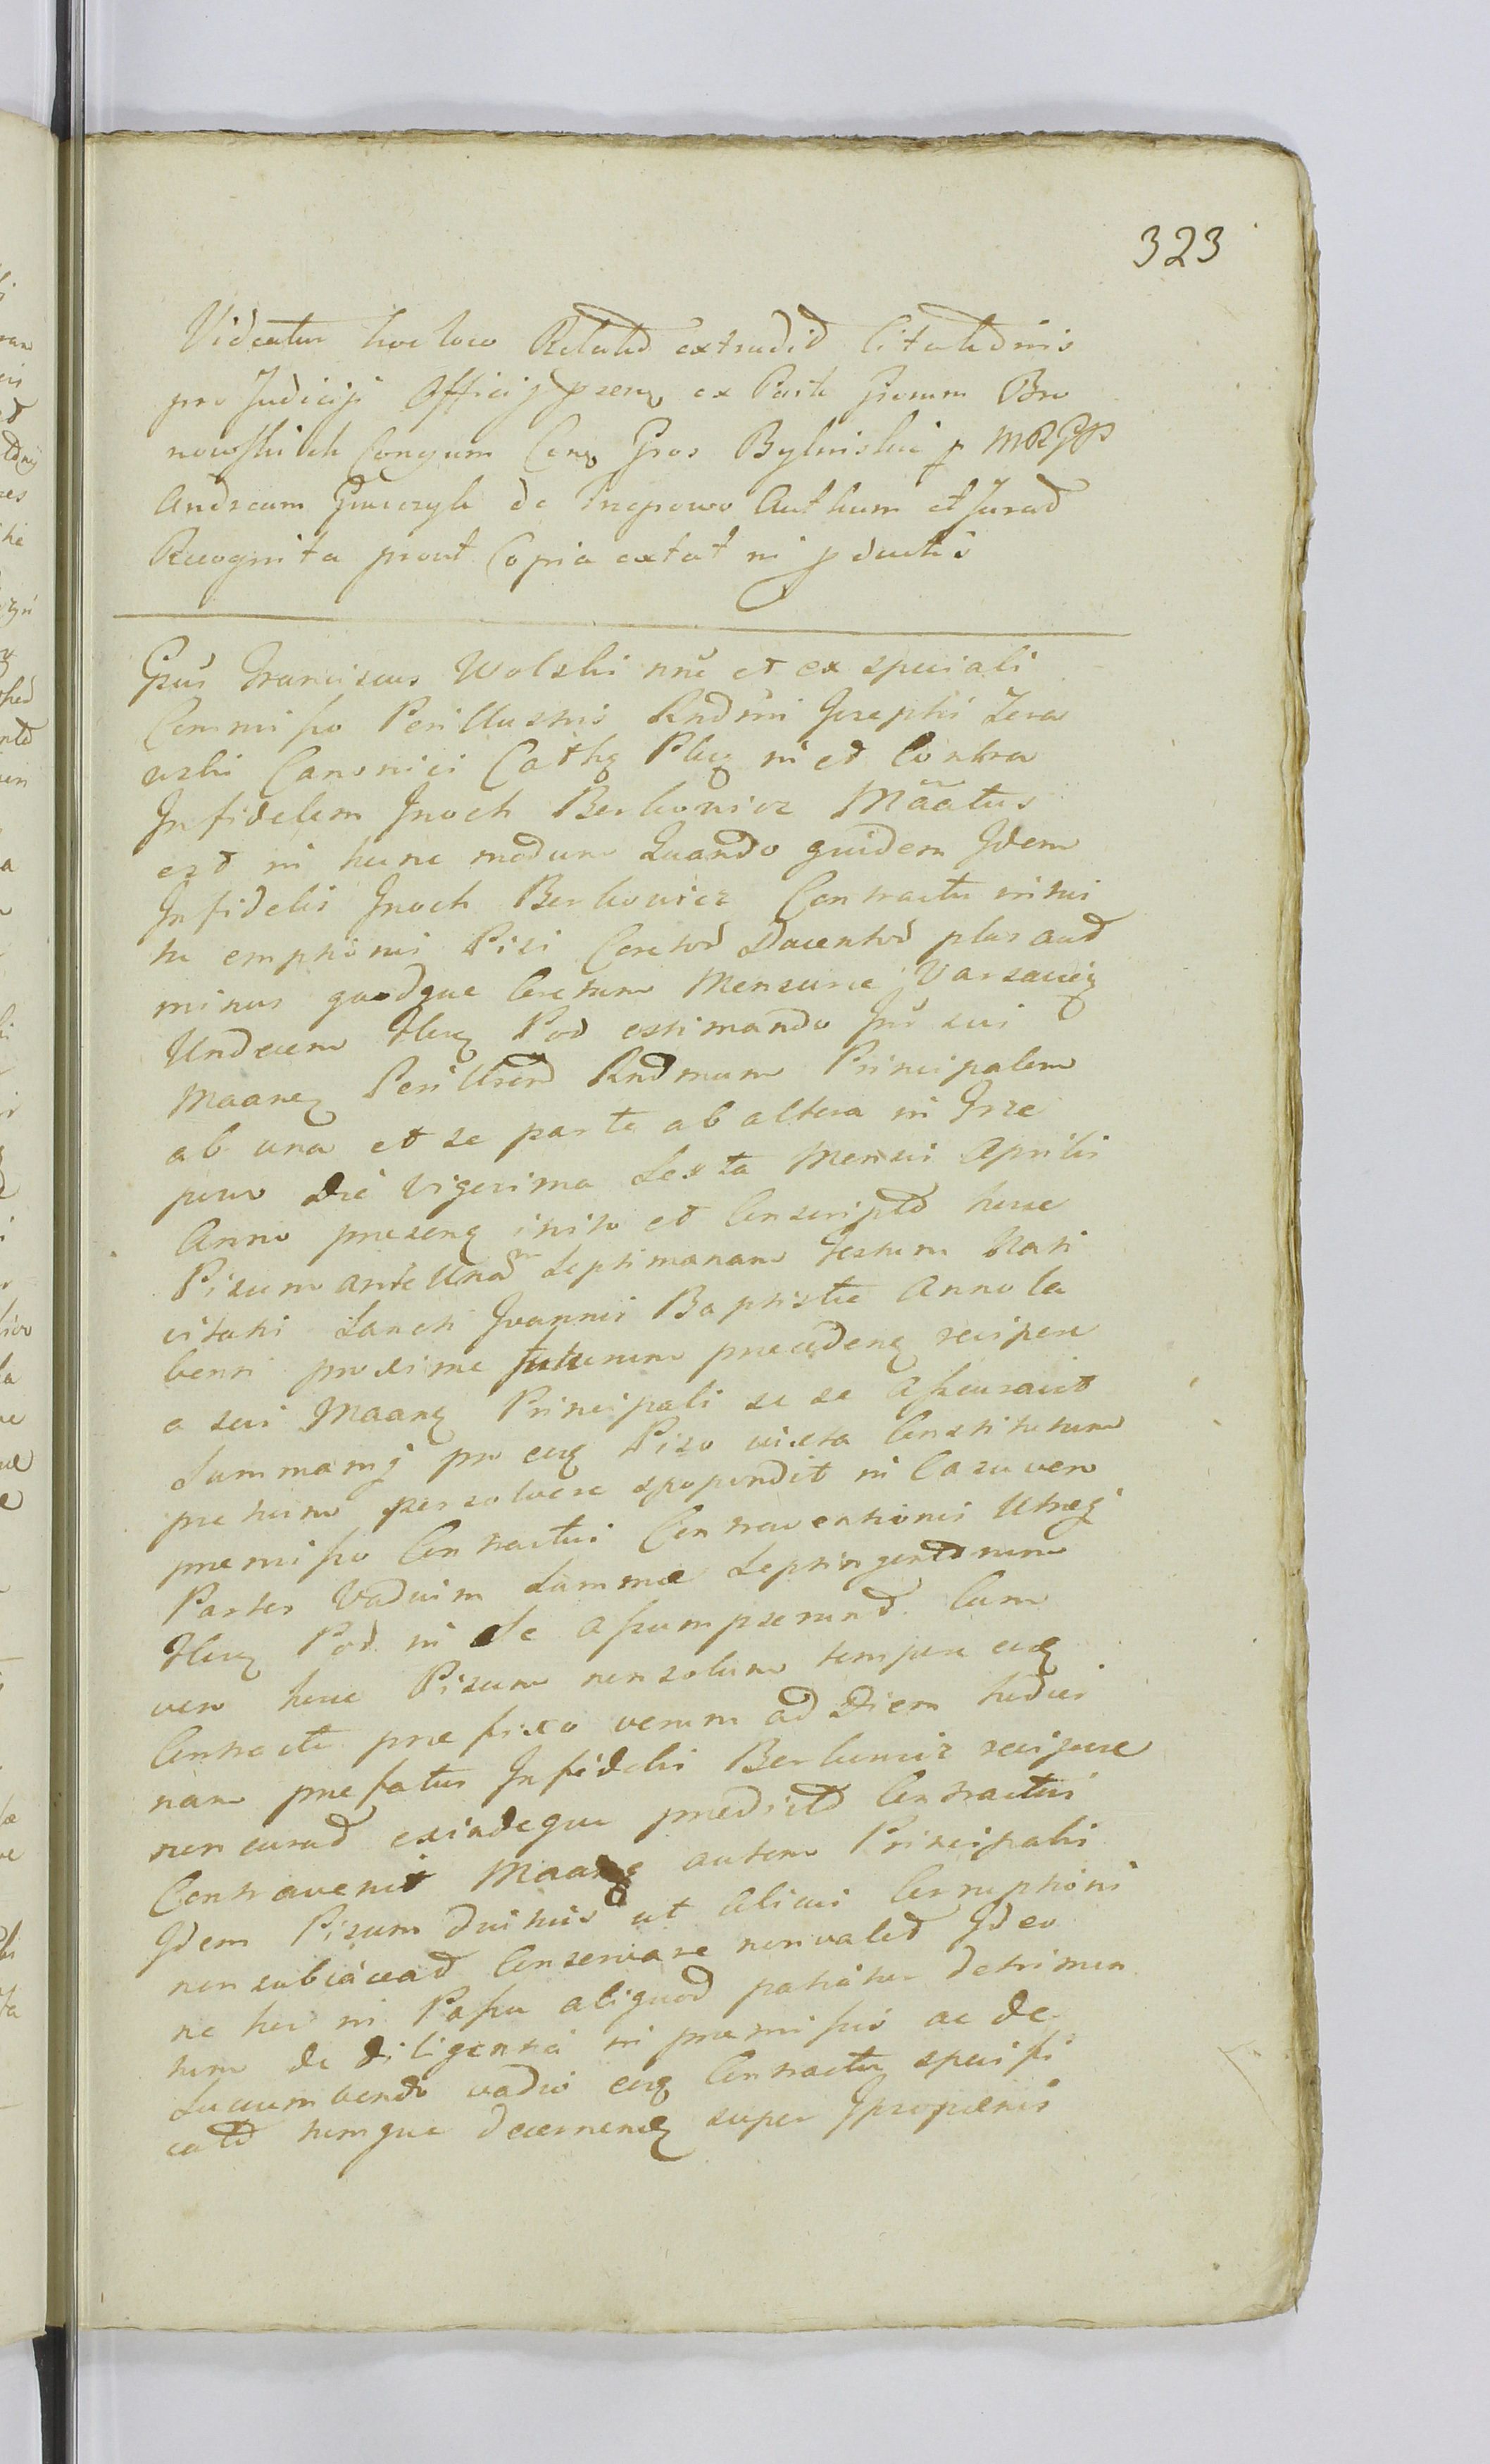 323
Videatur hoc loco Relatio extradit Citatedinis
pro Judicijs Officij pzenq ex Parte Grorum Bro
nowskich Conjum Conq Gros Bylinskie p MRGP
Andream de Autham et Jurad
Recognita prout Copia extat in pductis
Gsus Franciscus Wolski nne et ex speciali
Commisso Perillustris Rndmi Josephi Zera
nski Canonici Cathq Plcq in et Contra
Infidelem Jnoch Berkowicz Mãatus
est in hunc modum Quando quidem Jdem
Infidelis Jnoch Berkowicz Contractu inhui
tu emptionis Pisi Coretod Ducentod plus aud
minus quodque Coretum Mensurae Varsavieq
Undecem flenq Pod estimando Jnr sui
Maaneq Perillrem Rndmum Principalem
ab una et se parte ab altera in
puno Die Vigesima Sexta Mensis Aprilis
Anno praesenq inito et Conscripto hocce
Pisum ante Unam Septimanam Festum Nati
vitatis Sancti Joannis Baptistae Anno la
benti proxime futurum praecedenq recipere
a sui Maanq Principali se se assecuravit
Summamq pro eoq Piso iuxta Constitutum
pretium persolvere spopondit in Casu vero
praemisso Contractui Contraventionis Utraeq
Partes Vadium Summae Septingentorum
flenq Pod in Se assumpserund Cum
vero hocce Pisum non solum tempore eoq
Contractu praefixo verum ad Diem hodier
nam praefatus Infidelis Berkowicz recipere
non curad exindeque praedicto Contractui
Contravenit Maanq autem Principalis
Jdem Pisum diutius ut alicui Corruptioni
non subiacead Conservare non valed Jdeo
ne hoc in Passu aliquod patiatur detrimen
tum de diligentia in praemissis ac de
Succumbendo vadio eoq Contractu specifi
cato tumque decernenq super Jpropaenis